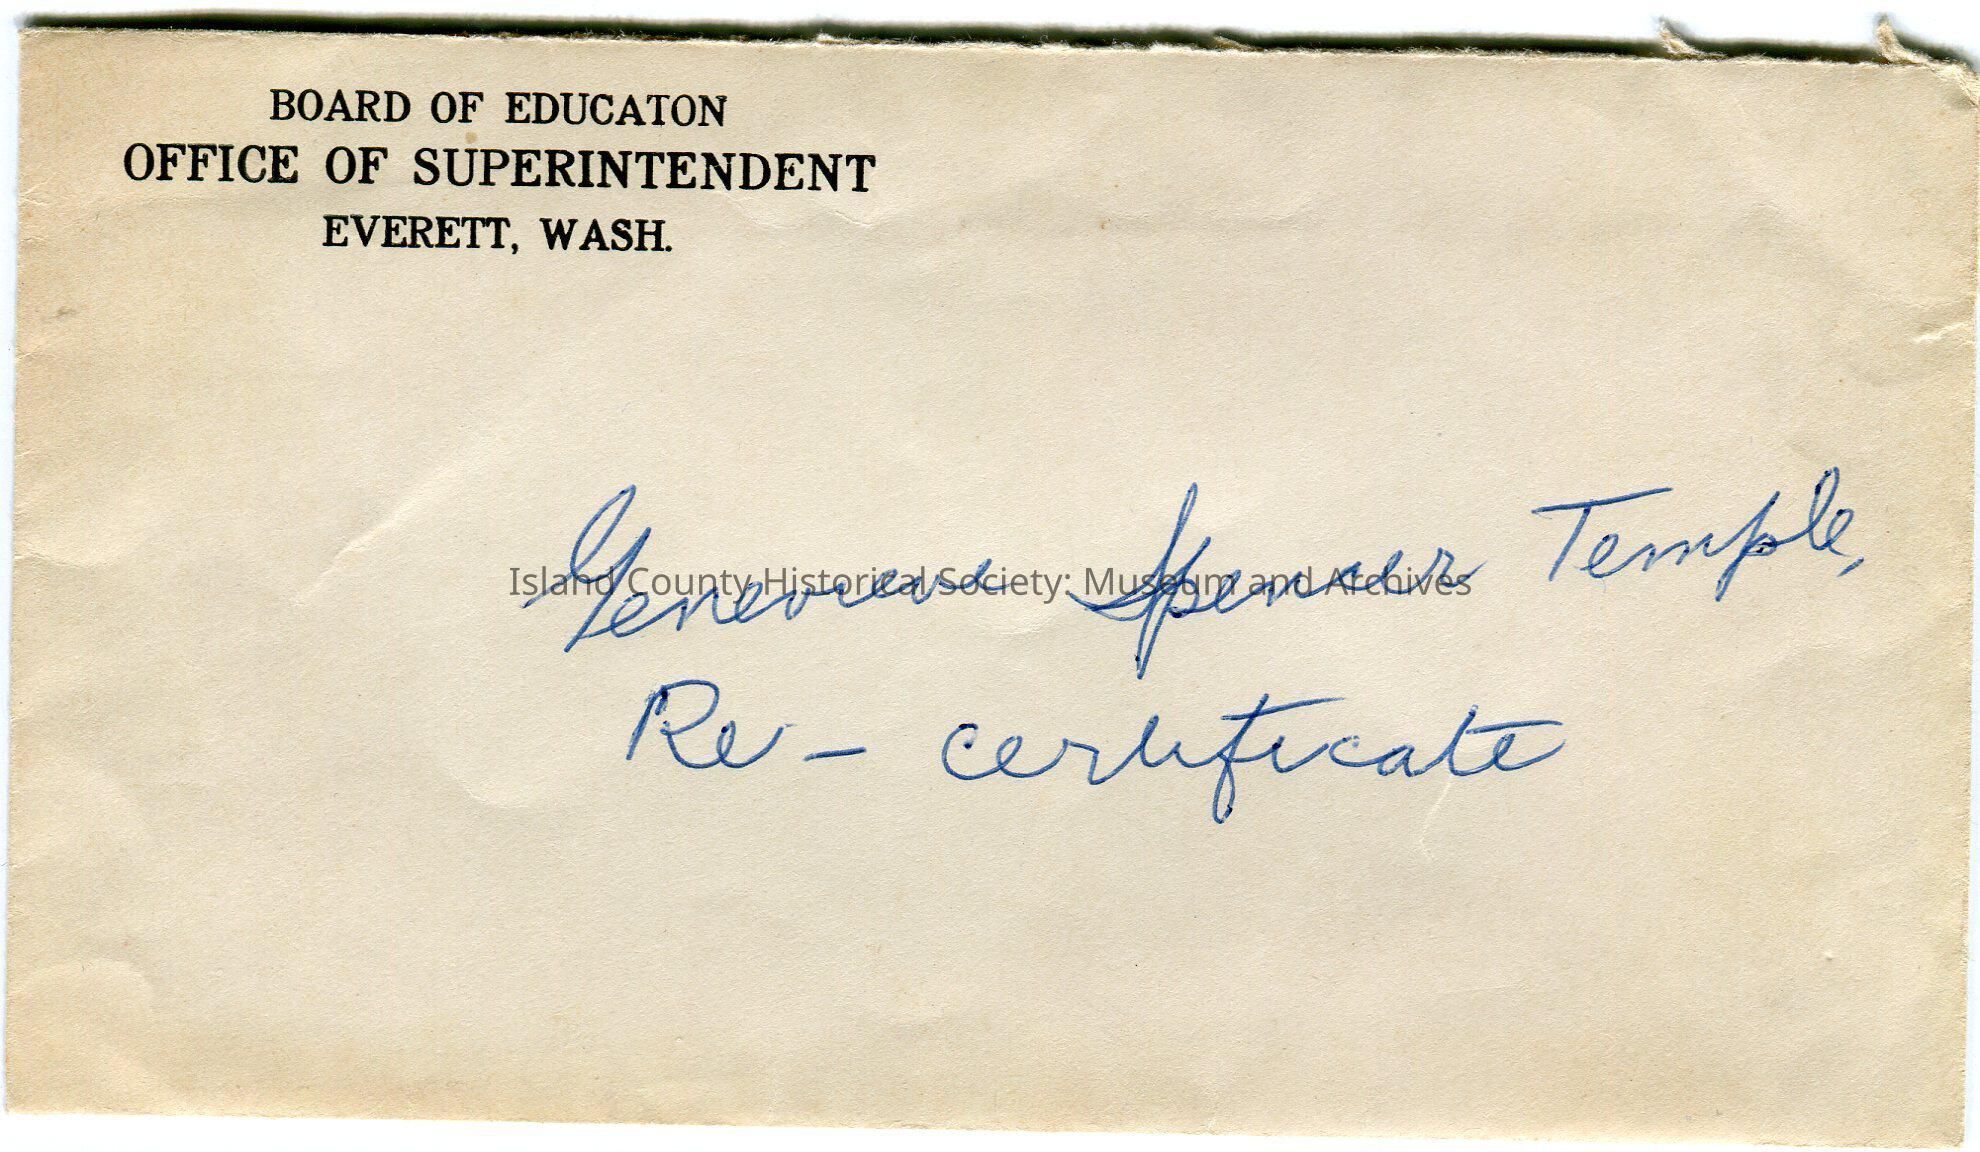 BOARD OF EDUCATON
OFFICE OF SUPERINTENDENT
EVERETT, WASH.
Genevieve Spencer Temple,
Island County Historical Society: Museum and Archives
Re- certificate